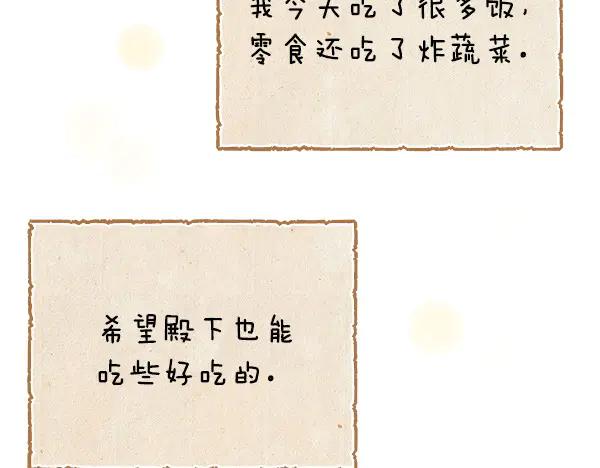 我今天吃了很多饭,
零食还吃了炸蔬菜.
希望殿下也能
吃些好吃的.